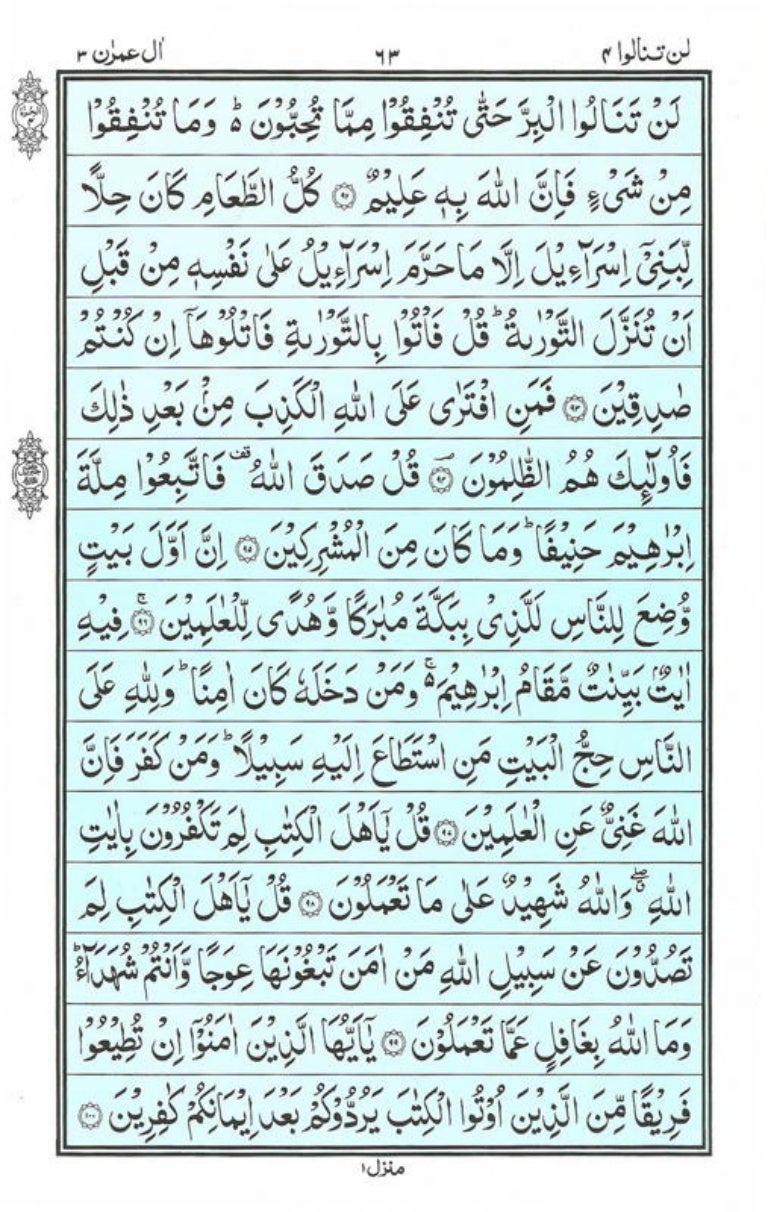 لن تنالوا ۴
۶۳
اٰل عمرٰن ۳
لَنْ تَنَالُوا الْبِرَّ حَتّٰى تُنْفِقُوْا مِمَّا تُحِبُّوْنَ ؕ۬ وَمَا تُنْفِقُوْا
مِنْ شَىْءٍ فَاِنَّ اللّٰهَ بِهٖ عَلِيْمٌ ﴿۹۲﴾ كُلُّ الطَّعَامِ كَانَ حِلًّا
لِّبَنِىْۤ اِسْرَآءِيْلَ اِلَّا مَا حَرَّمَ اِسْرَآءِيْلُ عَلٰى نَفْسِهٖ مِنْ قَبْلِ
اَنْ تُنَزَّلَ التَّوْرٰىةُ ؕ قُلْ فَاْتُوْا بِالتَّوْرٰىةِ فَاتْلُوْهَاۤ اِنْ كُنْتُمْ
صٰدِقِيْنَ ﴿۹۳﴾ فَمَنِ افْتَرٰى عَلَى اللّٰهِ الْكَذِبَ مِنْۢ بَعْدِ ذٰلِكَ
فَاُولٰٓئِكَ هُمُ الظّٰلِمُوْنَ ﴿۹۴﴾ قُلْ صَدَقَ اللّٰهُ قف فَاتَّبِعُوْا مِلَّةَ
اِبْرٰهِيْمَ حَنِيْفًا ؕ وَمَا كَانَ مِنَ الْمُشْرِكِيْنَ ﴿۹۵﴾ اِنَّ اَوَّلَ بَيْتٍ
وُّضِعَ لِلنَّاسِ لَلَّذِىْ بِبَكَّةَ مُبٰرَكًا وَّهُدًى لِّلْعٰلَمِيْنَ ۚ﴿۹۶﴾ فِيْهِ
اٰيٰتٌۢ بَيِّنٰتٌ مَّقَامُ اِبْرٰهِيْمَ ۚ۬ وَمَنْ دَخَلَهٗ كَانَ اٰمِنًا ؕ وَلِلّٰهِ عَلَى
النَّاسِ حِجُّ الْبَيْتِ مَنِ اسْتَطَاعَ اِلَيْهِ سَبِيْلًا ؕ وَمَنْ كَفَرَ فَاِنَّ
اللّٰهَ غَنِىٌّ عَنِ الْعٰلَمِيْنَ ﴿۹۷﴾ قُلْ يٰۤاَهْلَ الْكِتٰبِ لِمَ تَكْفُرُوْنَ بِاٰيٰتِ
اللّٰهِ ۖۗ وَاللّٰهُ شَهِيْدٌ عَلٰى مَا تَعْمَلُوْنَ ﴿۹۸﴾ قُلْ يٰۤاَهْلَ الْكِتٰبِ لِمَ
تَصُدُّوْنَ عَنْ سَبِيْلِ اللّٰهِ مَنْ اٰمَنَ تَبْغُوْنَهَا عِوَجًا وَّاَنْتُمْ شُهَدَآءُ ؕ
وَمَا اللّٰهُ بِغَافِلٍ عَمَّا تَعْمَلُوْنَ ﴿۹۹﴾ يٰۤاَيُّهَا الَّذِيْنَ اٰمَنُوْۤا اِنْ تُطِيْعُوْا
فَرِيْقًا مِّنَ الَّذِيْنَ اُوْتُوا الْكِتٰبَ يَرُدُّوْكُمْ بَعْدَ اِيْمَانِكُمْ كٰفِرِيْنَ ﴿۱۰۰﴾
منزل۱